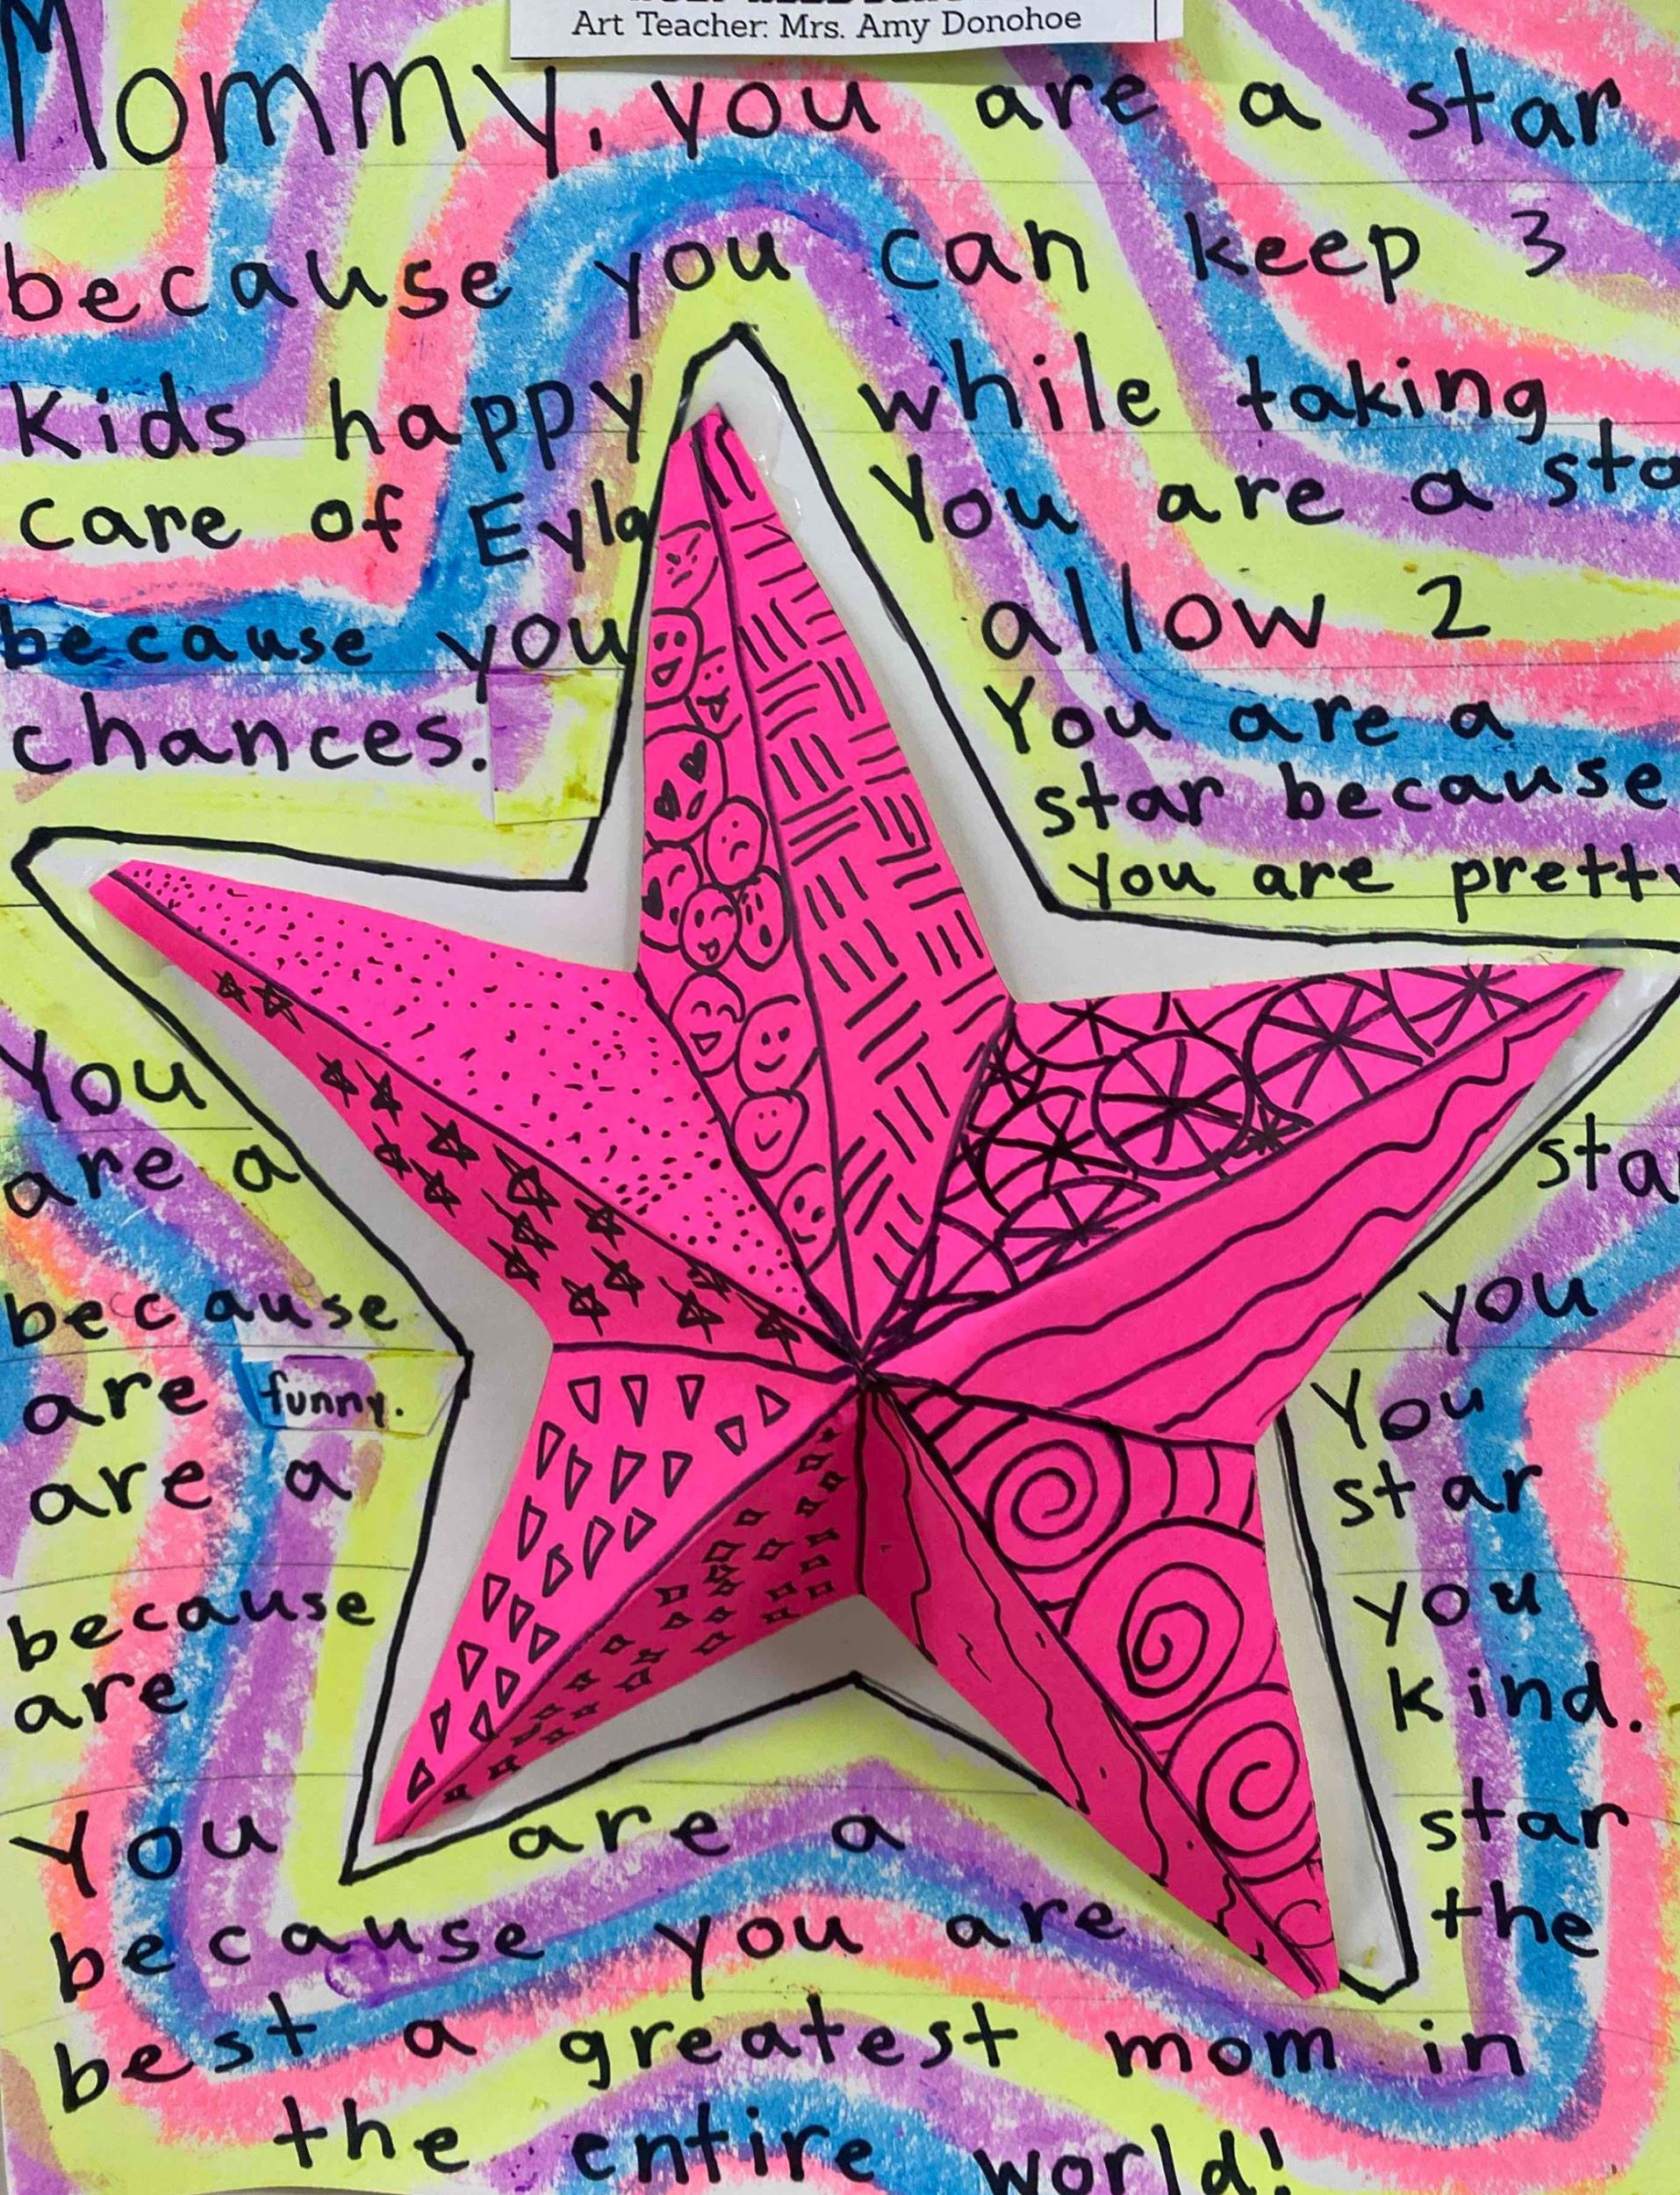 Art Teacher: Mrs. Amy Donohoe
Mommy, you are a star
because you can keep 3
kids happy while taking
care of Eyla You are a sta
because you allow 2
chances. You are a
star because
you are pretty
You sta
are a
because you
are funny. You
are a star
because you
are kind.
You are a star
because you are the
best a greatest mom in
the entire world!